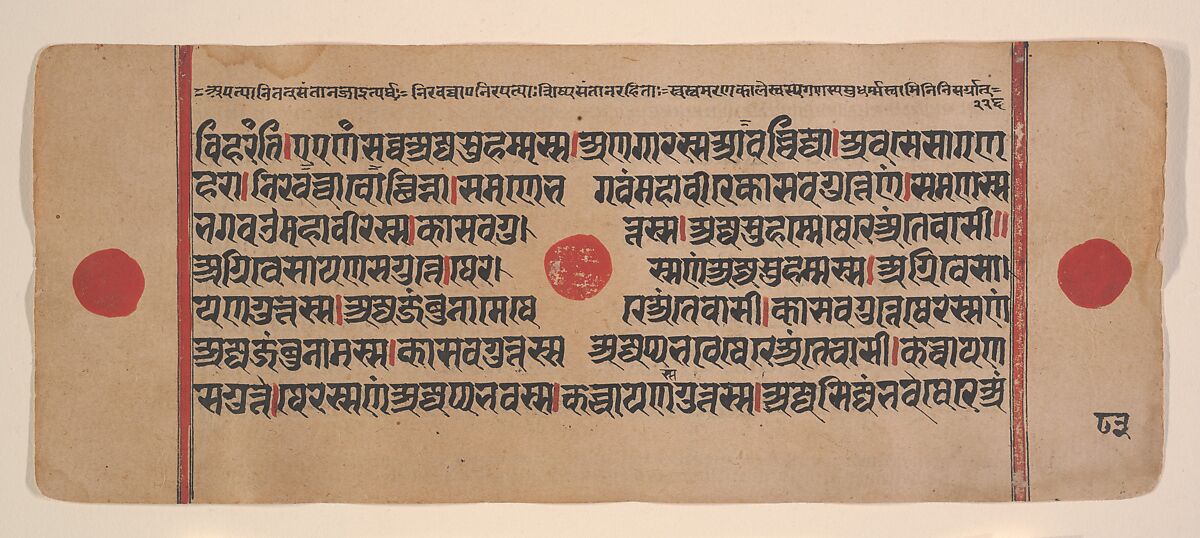 =अपत्यानि तत्संतानजा इत्यर्थः= निरवच्चाए निरपत्याः शिष्यसंतानरहिताः= स्वस्वमरणकालेस्वस्वगणस्य सुधर्मस्वामिनि निसर्गात्=
२२६
विहरंति। एएणं सव्वे अज्जसुहम्मस्स। अणगारस्स आवच्चिज्जा। अवसेसा गण
हरा। निरवच्चा वोच्छिन्ना। समणे भ गवं महावीरे कासवगुत्तेणं। समणस्स
भगवउ महावीरस्स। कासवगु। त्तस्स। अज्जसुहम्मे थेरे अंतेवासी॥
अग्गिवेसायणसगुत्ते। थेर। स्सणं अज्जसुहम्मस्स। अग्गिवेसा।
यणगुत्तस्स। अज्जजंबुनामे थे रे अंतेवासी। कासवगुत्ते थेरस्सणं
अज्जजंबुनामस्स। कासवगुत्तस्स अज्जप्पभवे थेरे अंतेवासी। कच्चायण
सगुत्ते। थेरस्सणं अज्जप्पभवस्स। कच्चायणगुत्तस्स। अज्जसिज्जंभवे थेरे अं
८३